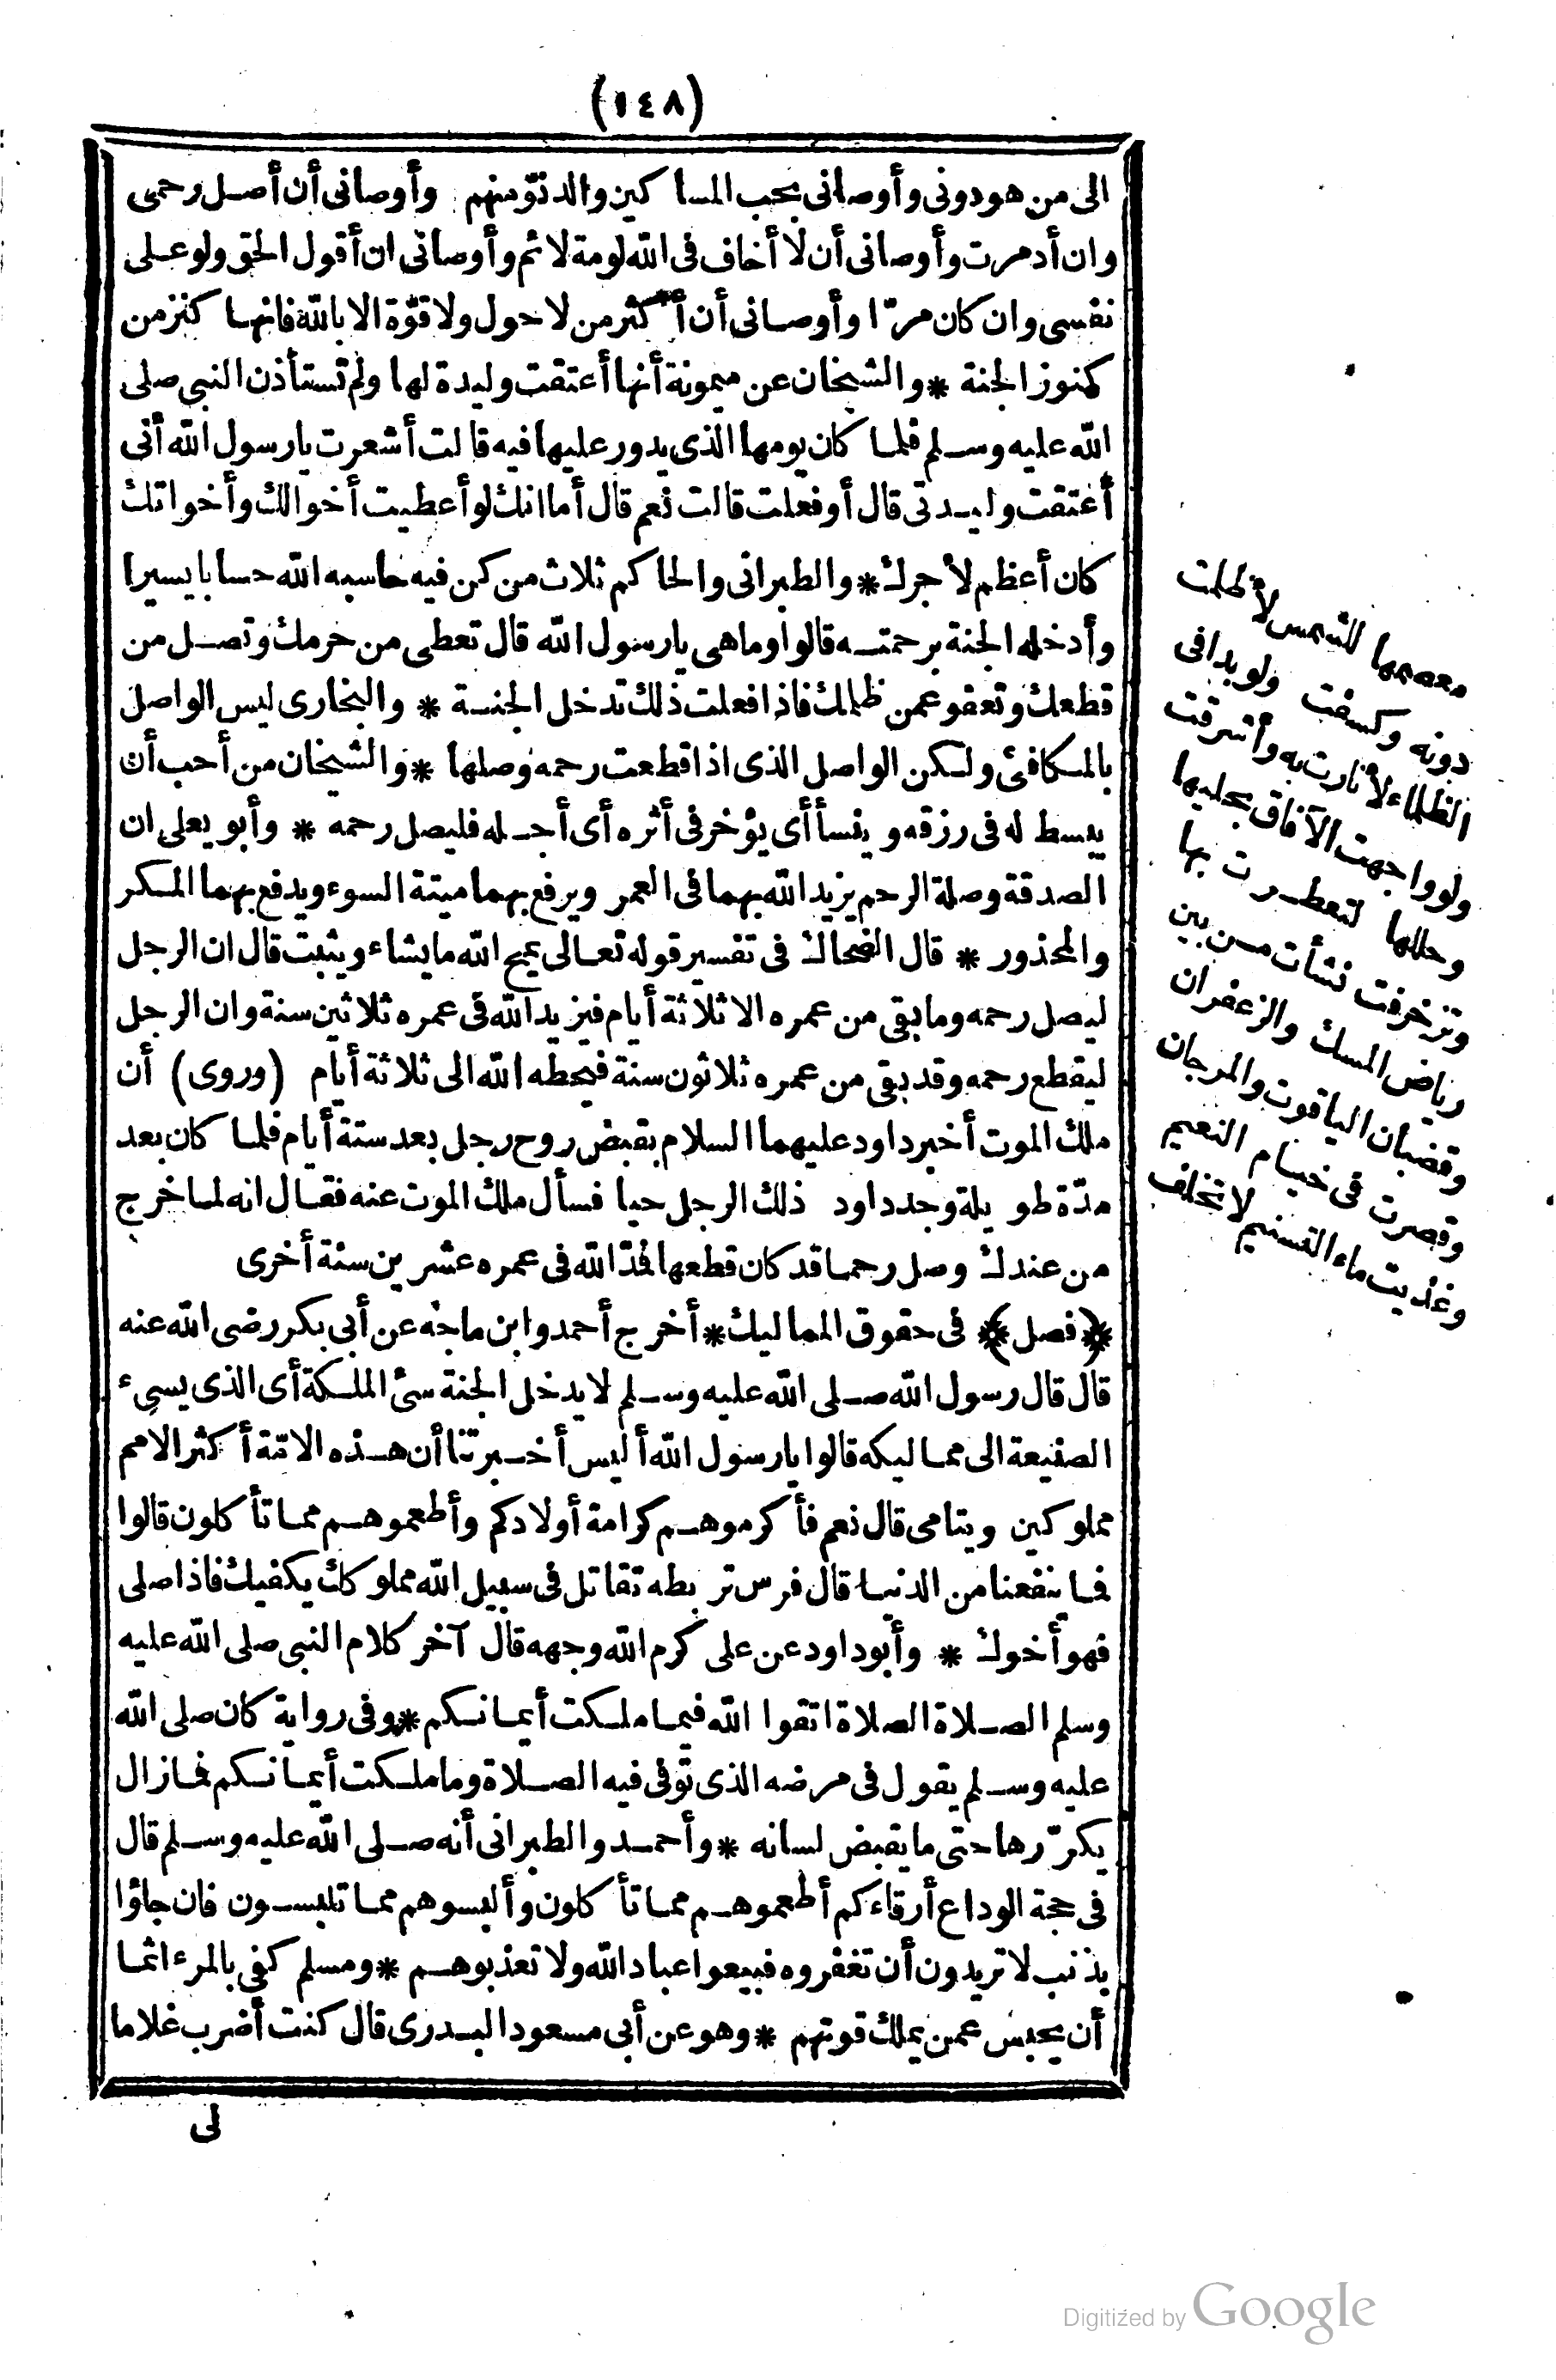 (١٤٨)
الى من هو دونى وأوصانى بحب المساكين والدنوّ منهم وأوصانى أن أصل رحمى
وان أدبرت وأوصانى أن لا أخاف فى الله لومة لائم وأوصانى ان أقول الحق ولو على
نفسى وان كان مرّا وأوصانى أن أكثر من لا حول ولا قوّة الا بالله فانها كنز من
كنوز الجنة * والشيخان عن ميمونة أنها أعتقت وليدة لها ولم تستأذن النبى صلى
الله عليه وسلم فلما كان يومها الذى يدور عليها فيه قالت أشعرت يا رسول الله أنى
أعتقت وليدتى قال أوفعلت قالت نعم قال أما انك لو أعطيت أخوالك وأخواتك
كان أعظم لأجرك * والطبرانى والحاكم ثلاث من كن فيه حاسبه الله حسابا يسيرا
وأدخله الجنة برحمته قالوا وما هى يا رسول الله قال تعطى من حرمك وتصل من
قطعك وتعفو عمن ظلمك فاذا فعلت ذلك تدخل الجنة * والبخارى ليس الواصل
بالمكافئ ولكن الواصل الذى اذا قطعت رحمه وصلها * والشيخان من أحب أن
يبسط له فى رزقه وينسأ أى يؤخر فى أثره أى أجله فليصل رحمه * وأبو يعلى ان
الصدقة وصلة الرحم يزيد الله بهما فى العمر ويرفع بهما ميتة السوء ويدفع بهما المكر
والمحذور * قال الضحاك فى تفسير قوله تعالى يمح الله ما يشاء ويثبت قال ان الرجل
ليصل رحمه وما بقى من عمره الا ثلاثة أيام فيزيد الله فى عمره ثلاثين سنة وان الرجل
ليقطع رحمه وقد بقى من عمره ثلاثون سنة فيحطه الله الى ثلاثة أيام (وروى) أن
ملك الموت أخبر داود عليهما السلام بقبض روح رجل بعد ستة أيام فلما كان بعد
مدّة طويلة وجد داود ذلك الرجل حيا فسأل ملك الموت عنه فقال انه لما خرج
من عندك وصل رحما قد كان قطعها فمدّ الله فى عمره عشرين سنة أخرى
﴿فصل﴾ فى حقوق المماليك * أخرج أحمد وابن ماجه عن أبى بكر رضى الله عنه
قال قال رسول الله صلى الله عليه وسلم لا يدخل الجنة سئ الملكة أى الذى يسىء
الصنيعة الى مماليكه قالوا يا رسول الله أليس أخبرتنا أن هذه الامّة أكثر الامم
مملوكين ويتامى قال نعم فأكرموهم كرامة أولادكم وأطعموهم مما تأكلون قالوا
فما ينفعنا من الدنيا قال فرس تربطه تقاتل فى سبيل الله مملوكك يكفيك فاذا صلى
فهو أخوك * وأبو داود عن على كرم الله وجهه قال آخر كلام النبى صلى الله عليه
وسلم الصلاة الصلاة اتقوا الله فيما ملكت أيمانكم * وفى رواية كان صلى الله
عليه وسلم يقول فى مرضه الذى توفى فيه الصلاة وما ملكت أيمانكم فما زال
يكرّرها حتى ما يقبض لسانه * وأحمد والطبرانى أنه صلى الله عليه وسلم قال
فى حجة الوداع أرقاءكم أطعموهم مما تأكلون وألبسوهم مما تلبسون فان جاؤا
بذنب لا تريدون أن تغفروه فبيعوا عباد الله ولا تعذبوهم * ومسلم كفى بالمرء اثما
أن يحبس عمن يملك قوتهم * وهو عن أبى مسعود البدرى قال كنت أضرب غلاما
لى
معصمها للشمس لأظلمت
دونه وكسفت ولو بدا فى
الظلماء لأنارت به وأشرقت
ولو واجهت الآفاق بحليها
وحللها لتعطرت بها
وتزخرفت نشأت من بين
رياض المسك والزعفران
وقضبان الياقوت والمرجان
وقصرت فى خيام النعيم
وغذيت بماء التسنيم لا تخلف
Digitized by Google